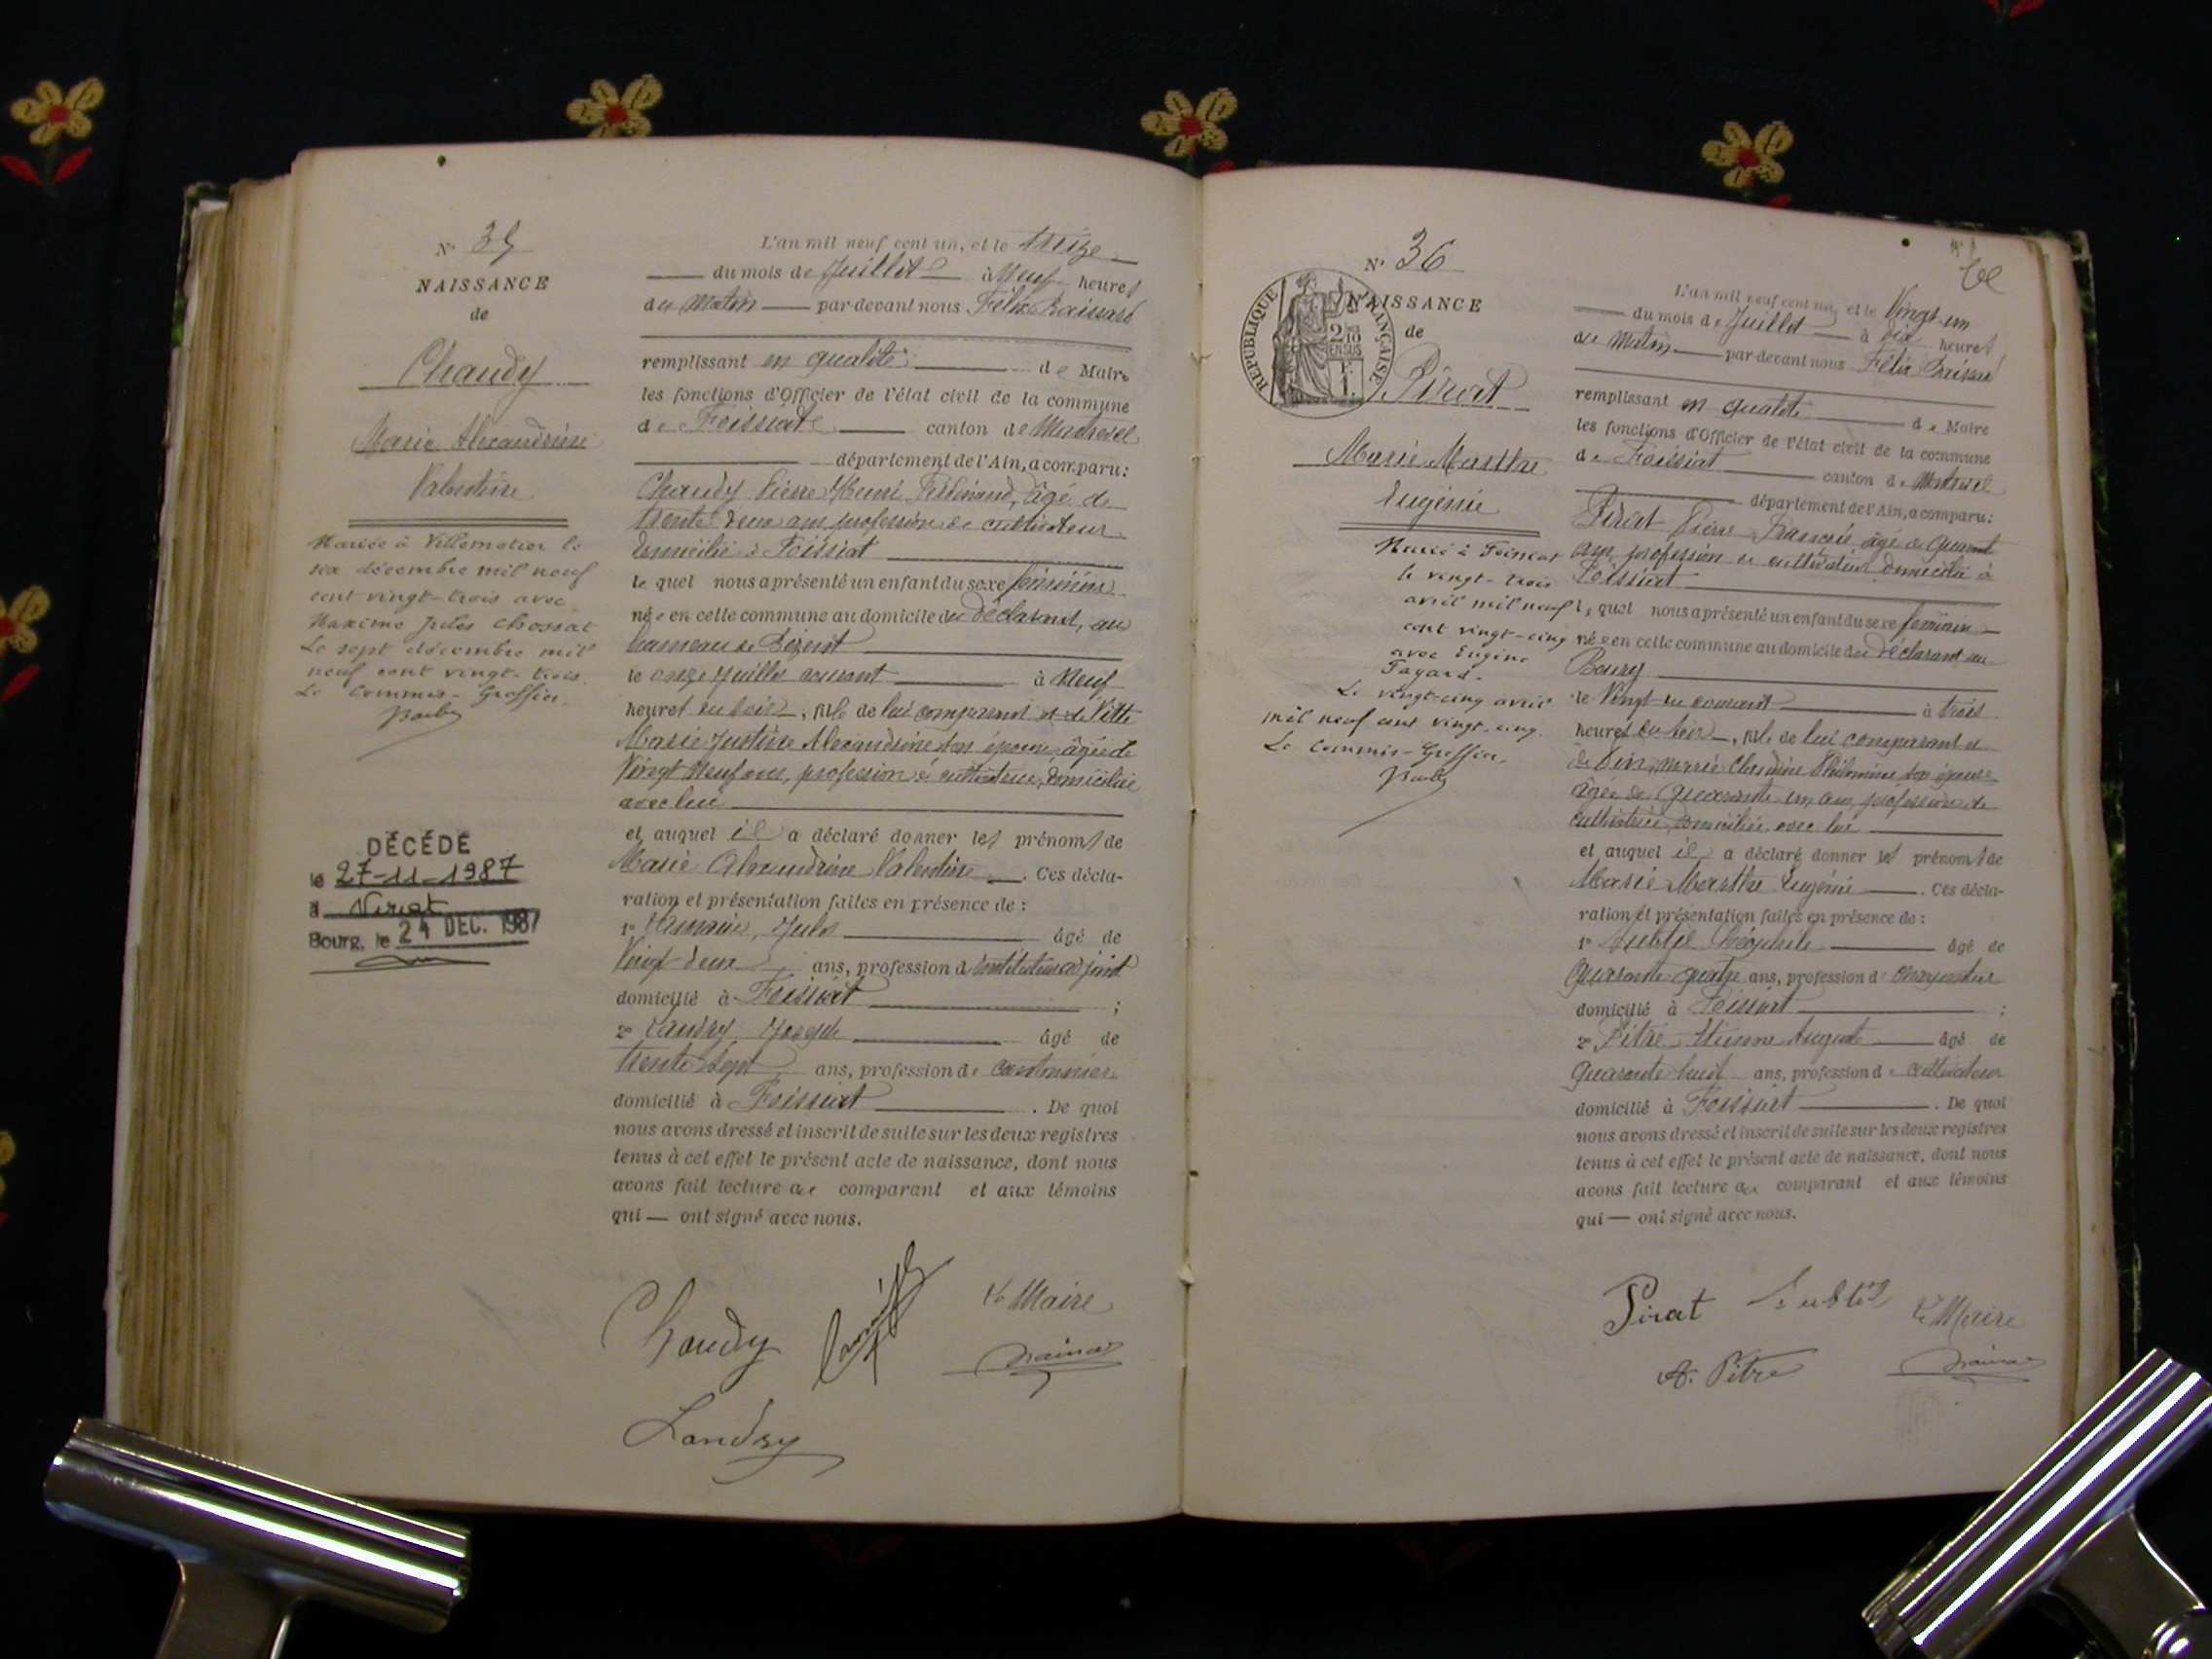 N° 35
NAISSANCE
de
Chaudy
Marie Alexandrine
Valentine
Mariée à Villemotier le
six décembre mil neuf
cent vingt-trois avec
Maxime Jules Chossat
Le sept décembre mil
neuf cent vingt-trois.
Le Commis-Greffier,
DÉCÉDÉ
le 27-11-1987
à Viriat
Bourg, le 24 DEC. 1987
L'an mil neuf cent un, et le treize
du mois de Juillet à Neuf heures
du Matin par-devant nous Félix
remplissant en qualité de Maire
les fonctions d'Officier de l'état civil de la commune
de Foissiat canton de Montrevel
département de l'Ain, a comparu :
Chaudy Pierre Henri Ferdinand, âgé de
trente deux ans, profession de cultivateur
domicilié à Foissiat
le quel nous a présenté un enfant du sexe féminin
née en cette commune au domicile du déclarant, au
hameau de
le onze Juillet courant à Neuf
heures du soir, fille de lui comparant et de
Marie Justine Alexandrine son épouse, âgée de
Vingt Neuf ans, profession de cultivatrice, domiciliée
avec lui
et auquel il a déclaré donner les prénoms de
Marie Alexandrine Valentine. Ces décla-
ration et présentation faites en présence de :
1° Jules âgé de
Vingt-deux ans, profession d'instituteur adjoint
domicilié à Foissiat ;
2° Landry Joseph âgé de
trente sept ans, profession de cantonnier
domicilié à Foissiat. De quoi
nous avons dressé et inscrit de suite sur les deux registres
tenus à cet effet le présent acte de naissance, dont nous
avons fait lecture au comparant et aux témoins
qui — ont signé avec nous.
Chaudy
Le Maire
Landry
N° 36
NAISSANCE
de
REPUBLIQUE FRANÇAISE
2/10 EN SUS
Pirat
Marie Marthe
Eugénie
Marié à Foissiat
le vingt-trois
avril mil neuf
cent vingt-cinq
avec Eugène
Fayard.
Le vingt-cinq avril
mil neuf cent vingt-cinq.
Le Commis-Greffier,
L'an mil neuf cent un, et le Vingt-un
du mois de Juillet à dix heures
du Matin par-devant nous Félix
remplissant en qualité de Maire
les fonctions d'Officier de l'état civil de la commune
de Foissiat canton de Montrevel
département de l'Ain, a comparu :
Pirat Pierre François âgé de quarante
ans, profession de cultivateur domicilié à
Foissiat
le quel nous a présenté un enfant du sexe féminin
née en cette commune au domicile du déclarant au
Bourg
le Vingt du courant à trois
heures du soir, fille de lui comparant et
de Marie Claudine Philomène son épouse
âgée de Quarante un ans profession de
cultivatrice, domiciliée avec lui
et auquel il a déclaré donner les prénoms de
Marie Marthe Eugénie. Ces décla-
ration et présentation faites en présence de :
1° Subtil âgé de
Quarante quatre ans, profession de
domicilié à Foissiat ;
2° Pitre Etienne Auguste âgé de
Quarante huit ans, profession de cultivateur
domicilié à Foissiat. De quoi
nous avons dressé et inscrit de suite sur les deux registres
tenus à cet effet le présent acte de naissance, dont nous
avons fait lecture au comparant et aux témoins
qui — ont signé avec nous.
Pirat Subtil Le Maire
A. Pitre